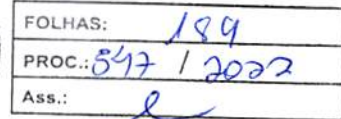 FOLHAS: 189
PROC.: 547 / 2022
Ass.: